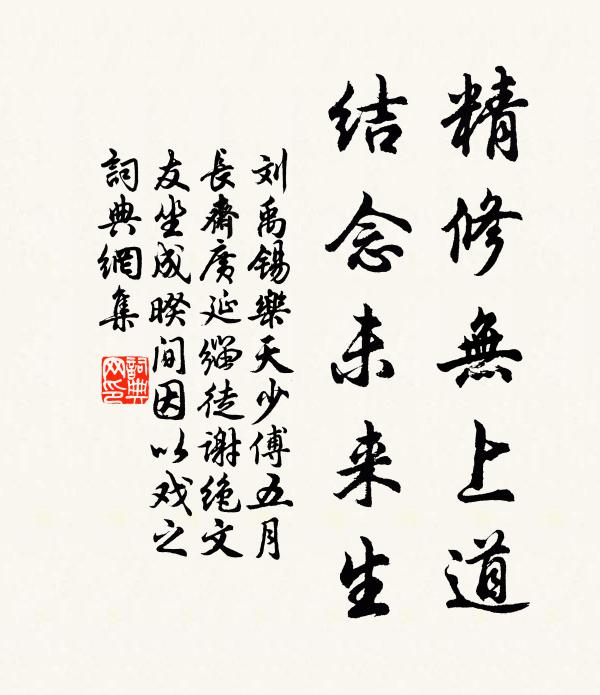 精修無上道
结念未来生
刘禹锡樂天少傅五月
長齋廣延缁徒谢绝文
友坐成暌间因以戏之
詞典網集
詞典网印